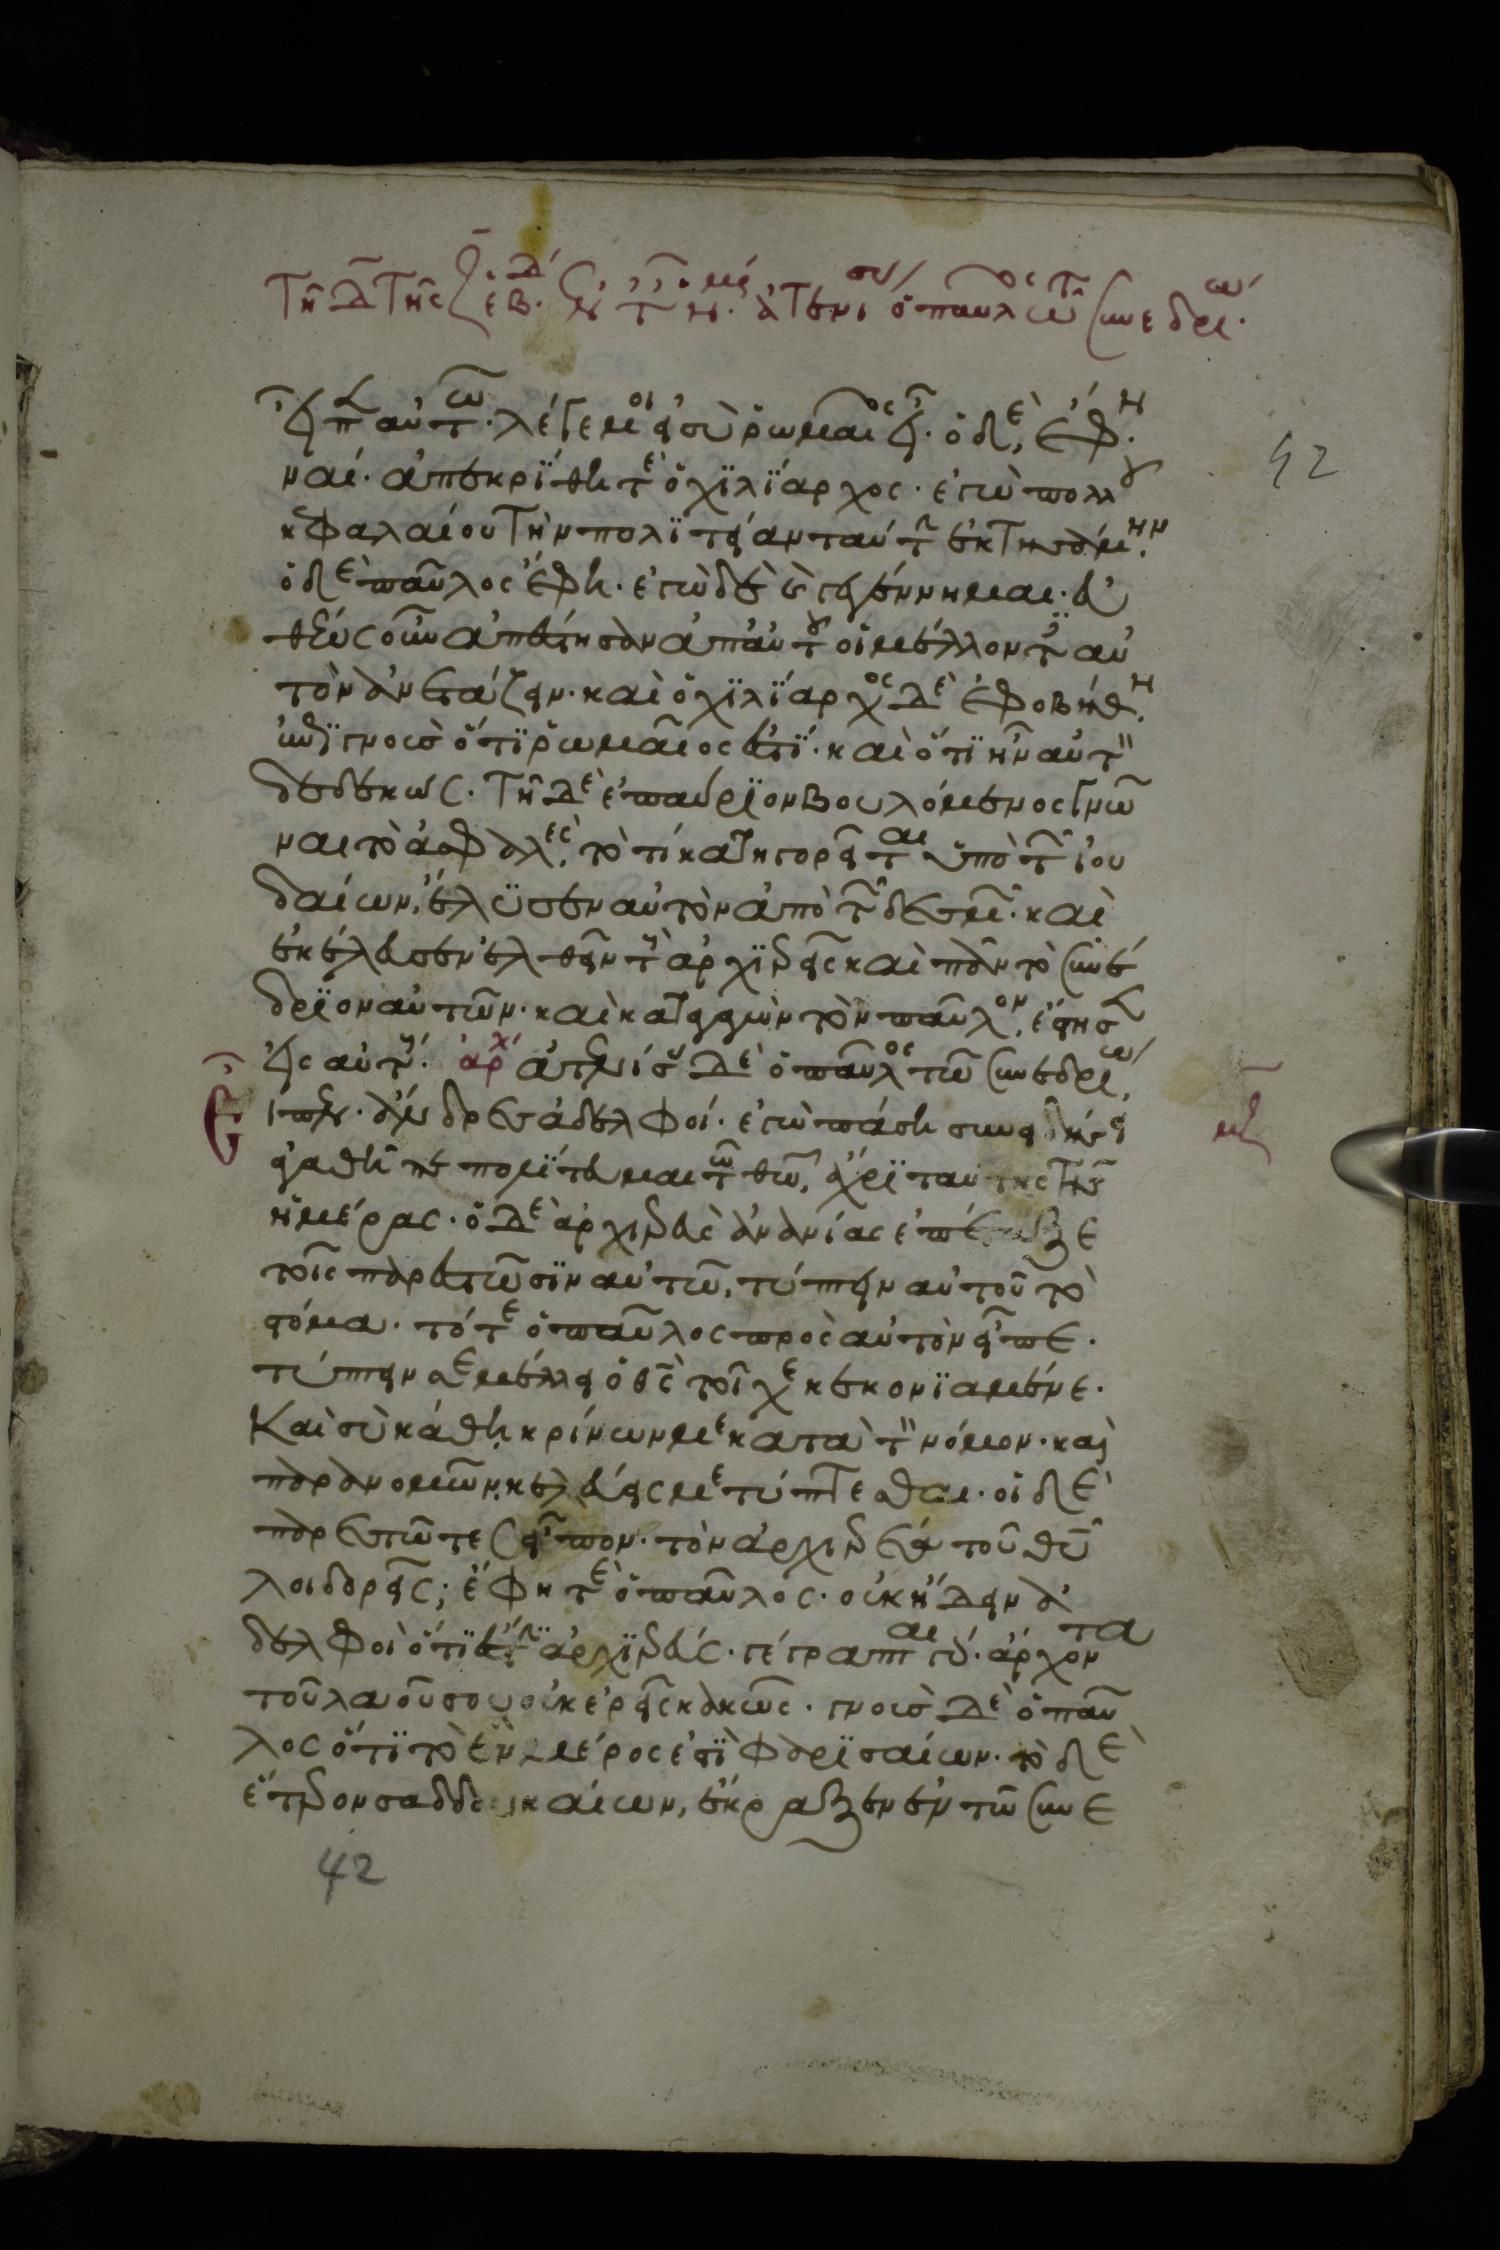 Τῇ δ τῆς ζ ἑβδ. ἐν τ ἡμέ. ἀτενίσας ὁ παῦλος τῷ συνεδρίῳ.
42
εἶπεν αὐτῷ· λέγε μοι εἰ σὺ ῥωμαῖος εἶ· ὁ δὲ, ἔφη·
ναί· ἀπεκρίθη τὲ ὁ χϊλϊαρχος· ἐγὼ πολλοῦ
κεφαλαίου τὴν πολϊτείαν ταύτην ἐκτησάμην.
ὁ δὲ παῦλος ἔφη· ἐγὼ δὲ καὶ γεγέννημαι· εὐ
θέως οὖν ἀπέστησαν ἀπ' αὐτοῦ οἱ μέλλοντες αὐ
τὸν ἀνετάζειν· καὶ ὁ χϊλϊαρχος δὲ ἐφοβήθη,
ἐπιγνοὺς ὅτϊ ῥωμαῖος ἐστϊ· καὶ ὅτϊ ἦν αὐτὸν
δεδεκώς· Τῇ δὲ ἐπαύριον βουλόμενος γνῶ
ναι τὸ ἀσφαλές, τὸ τί κατηγορεῖται ὑπὸ τῶν ἰου
δαίων, ἔλυσεν αὐτὸν ἀπὸ τῶν δεσμῶν· καὶ
ἐκέλευσεν ἐλθεῖν τοὺς ἀρχϊερεῖς καὶ πᾶν τὸ συνέ
δρϊον αὐτῶν· καὶ καταγαγὼν τὸν παῦλον, ἔστησεν
εἰς αὐτούς· ἀρχ ἀτενίσας δὲ ὁ παῦλος τῷ συνεδρίῳ,
εἶπεν· ἄνδρες ἀδελφοί· ἐγὼ πάσῃ συνειδήσει
ἀγαθῇ πεπολίτευμαι τῷ θῶ, ἄχρϊ ταύτης τῆς
ἡμέρας· ὁ δὲ ἀρχιερεὺς ἀνανίας ἐπέταξε
τοῖς παρεστῶσϊν αὐτῶ, τύπτειν αὐτοῦ τὸ
στόμα· τότε ὁ παῦλος πρὸς αὐτὸν εἶπε·
τύπτειν σε μέλλει ὁ θς τοῖχε κεκονϊαμένε·
Καὶ σὺ κάθῃ κρίνων με κατὰ τὸν νόμον· καὶ
παρανομῶν, κελεύεις με τύπτεσθαι· οἱ δὲ
παρεστῶτες εἶπον· τὸν ἀρχιερέα τοῦ θυ
λοιδορεῖς; ἔφη τὲ ὁ παῦλος· οὐκ ἤδειν ἀ
δελφοὶ ὅτϊ ἐστὶν ἀρχϊερεύς· γέγραπται γάρ· ἄρχοντα
τοῦ λαοῦ σου οὐκ ἐρεῖς κακῶς· γνοὺς δὲ ὁ παῦ
λος ὅτϊ τὸ ἓν μέρος ἐστὶ φαρϊσαίων· τὸ δὲ
ἕτερον σαδδουκαίων, ἔκραξεν ἐν τῶ συνε
42